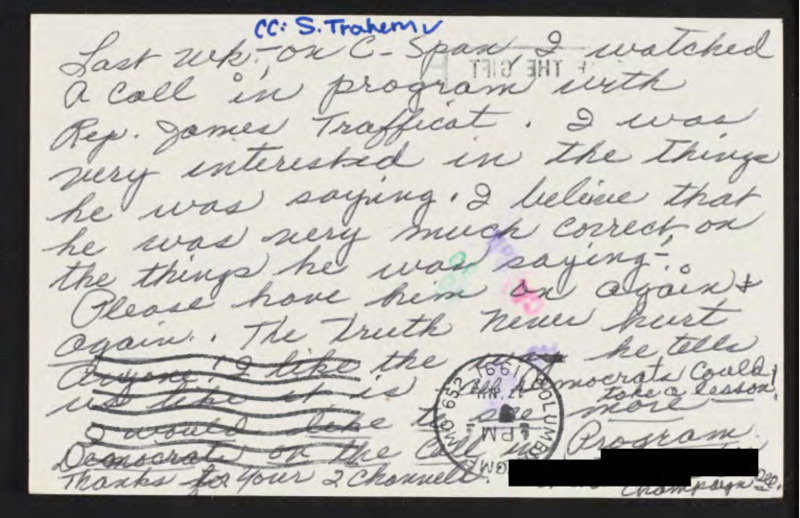 CC: S. Trahern
Last wk, on C-Span I watched
a call in program with
Rep. James Trafficat. I was
very interested in the things
he was saying. I believe that
he was very much correct on
the things he was saying -
Please have him on again &
again. The truth never hurt
anyone! I like the way he tells
us like it is. All Democrats could
take a lesson!
I would like to see more
Democrats on the Call in Program.
Thanks for your 2 Channels.
Champaign Ill.
THE GIFT
COLUMBIA MO 652
PM
1991